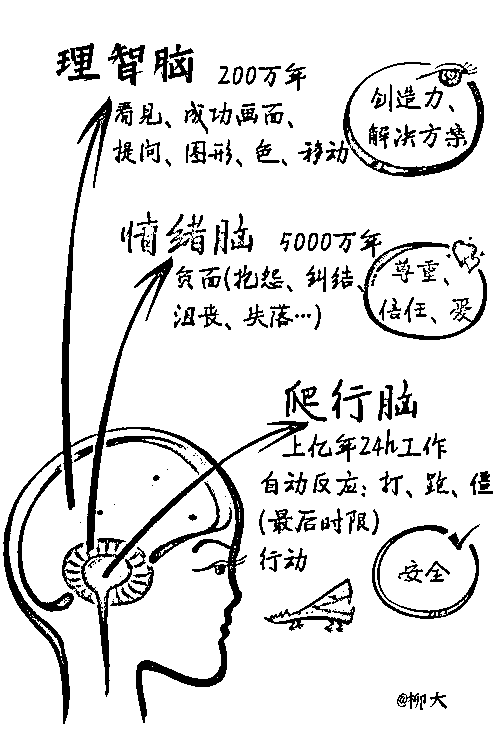 理智脑 200万年
看见、成功画面、
提问、图形、色、移动
创造力、
解决方案
情绪脑 5000万年
负面(抱怨、纠结、
沮丧、失落…)
尊重、
信任、爱
爬行脑
上亿年24h工作
自动反应：打、跑、僵
(最后时限)
行动
安全
@柳大